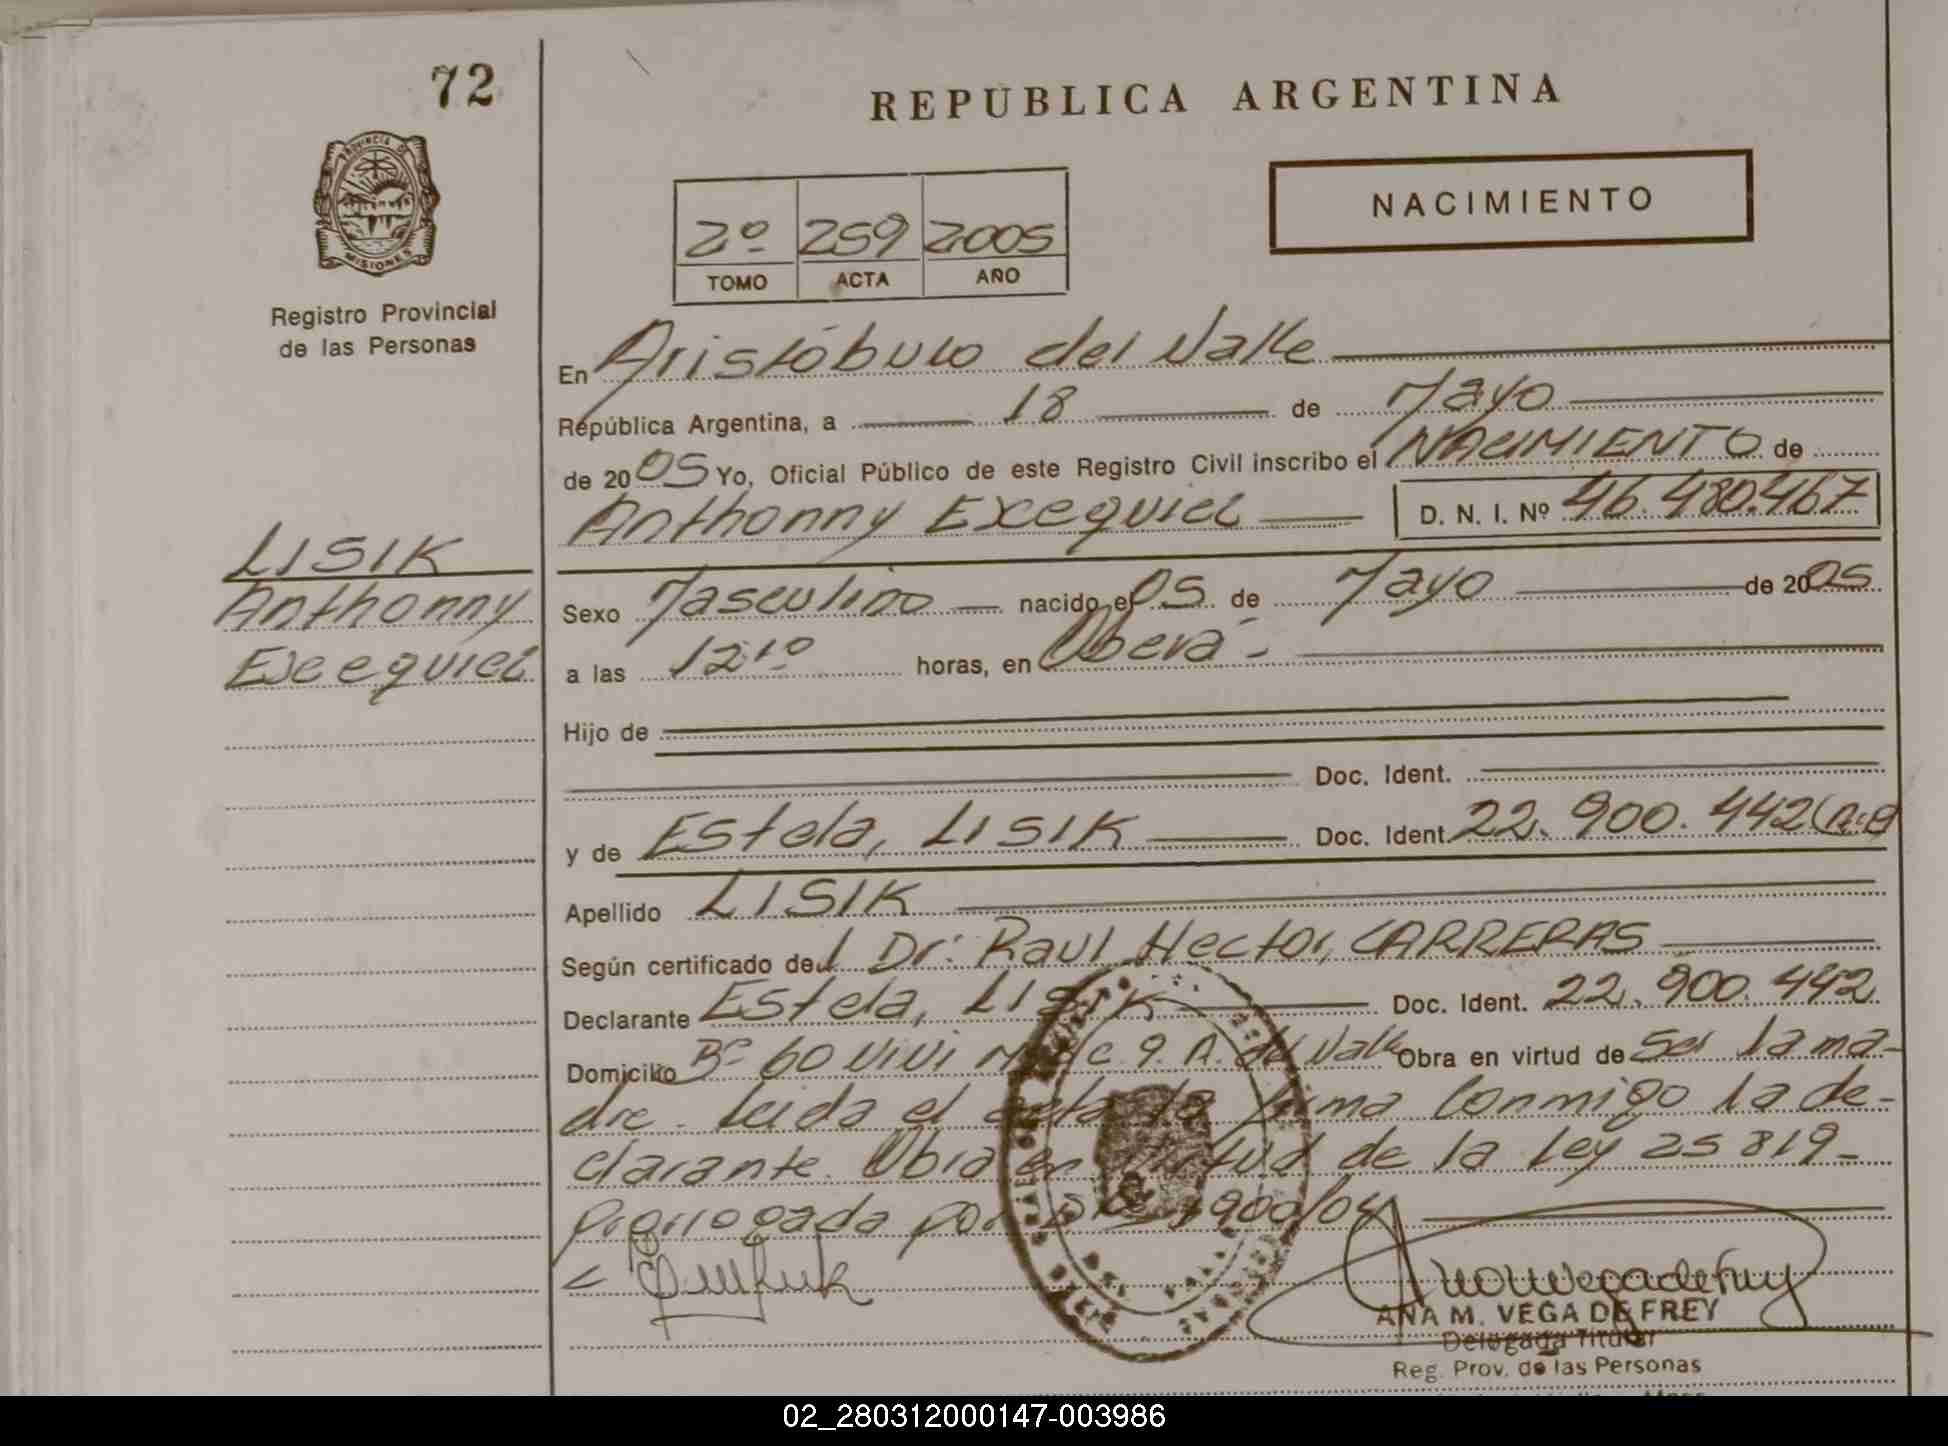 72
REPUBLICA ARGENTINA
PROVINCIA DE
MISIONES
Registro Provincial
de las Personas
NACIMIENTO
2º 259 2005
TOMO ACTA AÑO
En Aristóbulo del Valle
República Argentina, a 18 de Mayo
de 2005 Yo, Oficial Público de este Registro Civil inscribo el NACIMIENTO de
Anthonny Exequiel D. N. I. Nº 46.480.467
LISIK
Anthonny
Exequiel
Sexo Masculino nacido el 05 de Mayo de 2005
a las 12 10 horas, en Oberá.-
Hijo de
Doc. Ident.
y de Estela, LISIK Doc. Ident. 22.900.442
Apellido LISIK
Según certificado del Dr: Raul Hector, CARRERAS
Declarante Estela, LISIK Doc. Ident. 22.900.442
Domicilio Bº 60 vivi C 9. A. del Valle Obra en virtud de ser la ma-
dre. Leida el acta la firma conmigo la de-
clarante. Obra en virtud de la Ley 25819-
Prorrogada por
ANA M. VEGA DE FREY
Delegada Titular
Reg. Prov. de las Personas
02_280312000147-003986